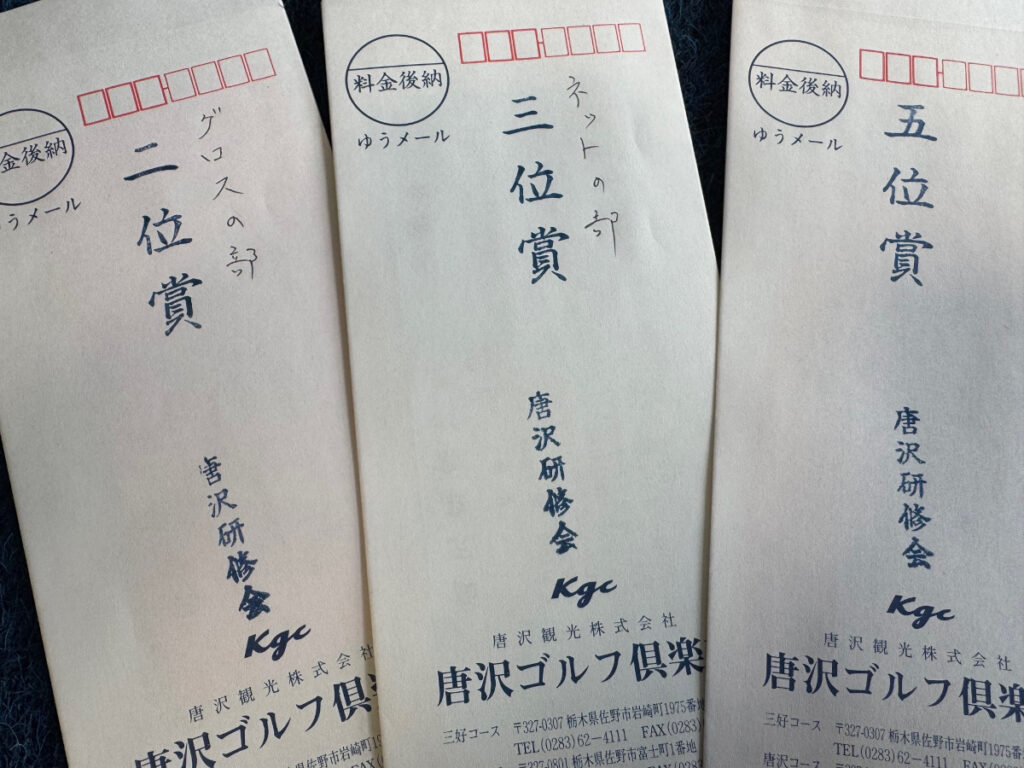 金後納
うメール
グロスの部
二位賞
唐沢研修会
Kgc
唐沢観光株式会社
唐沢ゴルフ倶
栃木県佐野市岩崎町19
料金後納
ゆうメール
ネットの部
三位賞
唐沢研修会
Kgc
唐沢観光株式会社
唐沢ゴルフ倶楽
三好コース 〒327-0307 栃木県佐野市岩崎町1975番地
TEL(0283)62−4111 FAX(0283)
唐沢コース 〒327-0801 栃木県佐野市富士町1番地
料金後納
ゆうメール
五位賞
唐沢研修会
Kgc
唐沢観光株式会社
唐沢ゴルフ倶楽
三好コース 〒327-0307 栃木県佐野市岩崎町1975番
TEL(0283)62−4111 FAX(0